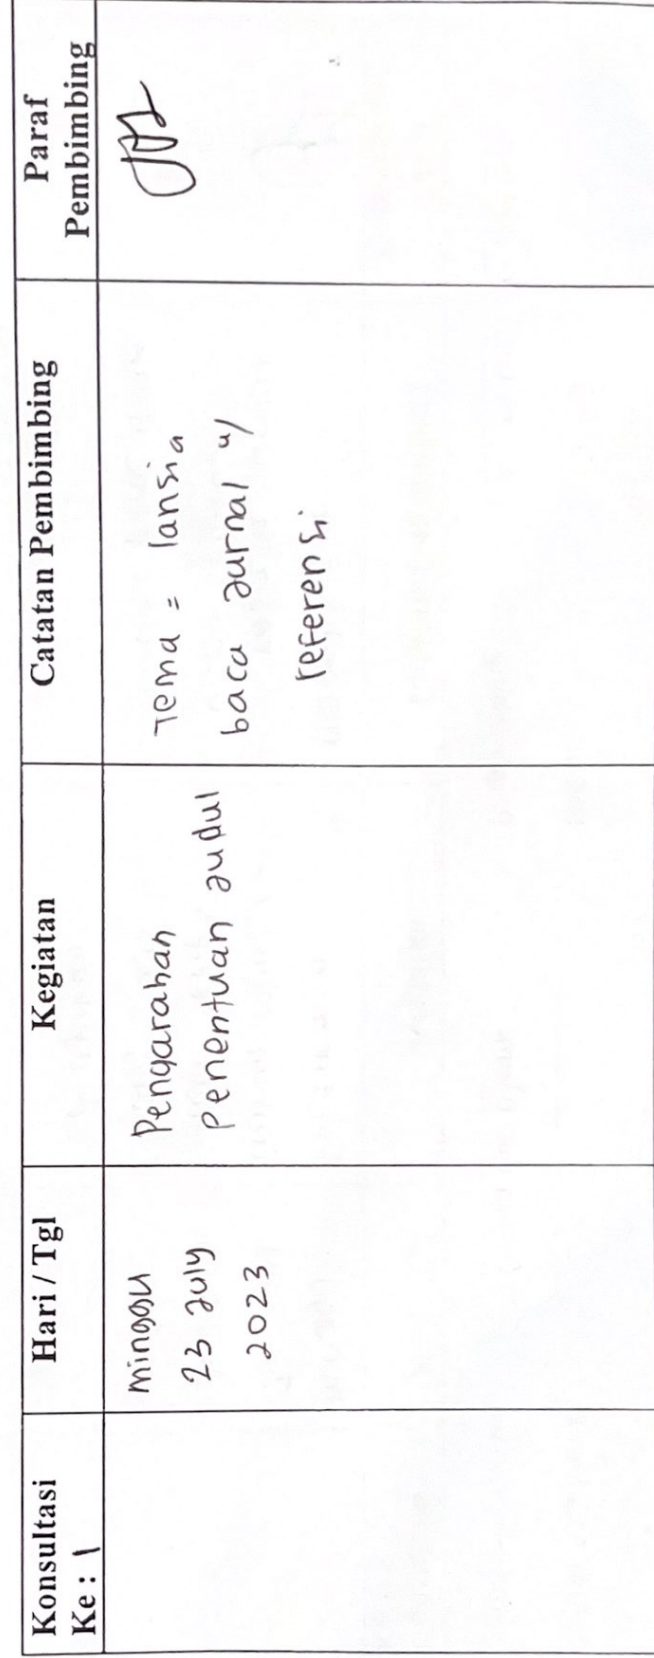 Konsultasi
Ke : 1
Hari / Tgl
Kegiatan
Catatan Pembimbing
Paraf
Pembimbing
minggu
23 July
2023
Pengarahan
Penentuan Judul
Tema = lansia
baca Jurnal u/
referensi